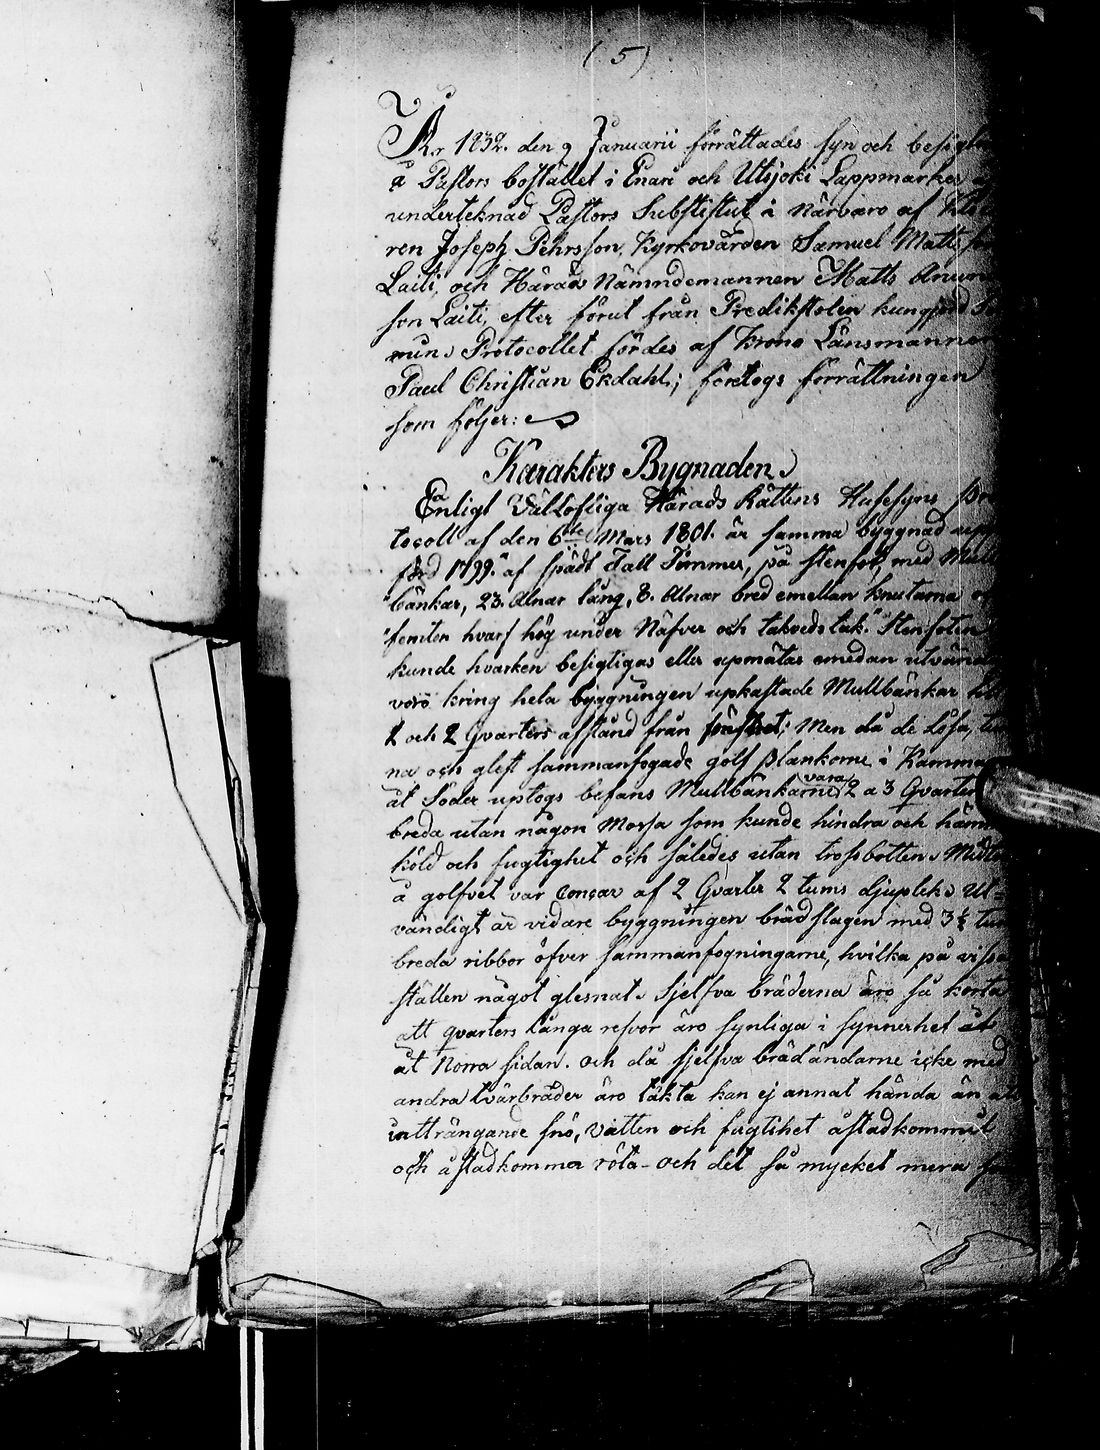 (5)
År 1832. den 9 Januarii förrättades syn och
å Pastors bostället i Enare och Utsjoki Lappmarker
underteknad Pastors Substitut i närvaro af
ren Joseph Pehrsson, Kyrkovärden Samuel
Laiti, och Härads Nämndemannen Matts
son Laiti, efter förut från Predikstolen
Protocollet fördes af Krono Länsmannen
Paul Christian Ekdahl; företogs förrättningen
som följer:
Karakters Bygnaden
Enligt Vällofliga Härads Rättens Husesyns
tocoll af den 6te Mars 1801. är samma byggnad
förd 1799. af spädt Tall Timmer, på stenfot, med
bänkar, 23. Alnar lång, 8. Alnar bred emellan knutarna
"femton hvarf hög under Näfver och takvedstak." Stenfoten
kunde hvarken besigtigas eller upmätas emedan
voro kring hela byggningen upkastade Mullbänkar
1 och 2 Qvarters afstånd från; Men då de lösa,
na och glest sammanfogade golf plankorne i
åt Söder uptogs befans Mullbänkarne vara 2 a 3 Qvarter
breda utan någon Mossa som kunde hindra och
köld och fugtighet och således utan trossbotten.
å golfvet var concav af 2 Qvarter 2 tums djuplek. Ut-
vändigt är vidare byggningen brädslagen med 3½
breda ribbor öfver sammanfogningarne, hvilka på vissa
ställen något glesnat. Sjelfva bräderna äro så korta
att qvarters långa refvor äro synliga i synnerhet åt
åt Norra sidan. och då sjelfva brädändarne icke med
andra tvärbräder äro täkta kan ej annat hända än
inträngande snö, vatten och fugtihet åstadkommit
och åstadkomma röta – och det så mycket mera